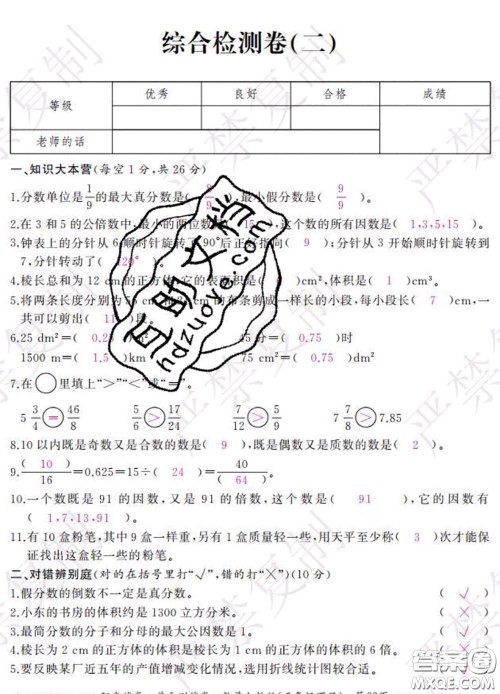 综合检测卷(二)
等级 优秀 良好 合格 成绩
老师的话
一、知识大本营(每空1分,共26分)
1.分数单位是1/9的最大真分数是( 8/9 ),最小假分数是( 9/9 )。
2.在3和5的公倍数中,最小的两位数是( 15 ),这个数的所有因数是( 1,3,5,15 )。
3.钟表上的分针从6顺时针旋转了90°后正好指向( 9 );分针从3开始顺时针旋转到
7,分针转动了( 120° )。
4.棱长总和为12 cm的正方体,它的表面积是( )cm²,体积是( 1 )cm³。
5.将两条长度分别为 cm和 cm的布条剪成一样长的小段,每小段长( 7 )cm,一
共可以剪出( 11 )段。
6.25 dm²=( )m² 45分=( 0.75 )时
1500 m=( 1.5 )km 75 cm²=( 0.75 )dm²
7.在○里填上“>”“<”或“=”。
5 3/4 = 46/8 5/7 > 17/24 7/12 > 5/9 7 7/8 > 7.85
8.10以内既是奇数又是合数的数是( 9 ),既是偶数又是质数的数是( 2 )。
9.( 10 )/16=0.625=15÷( 24 )=40/( 64 )
10.一个数既是91的因数,又是91的倍数,这个数是( 91 ),它的因数有
( 1,7,13,91 )。
11.有10盒粉笔,其中9盒一样重,另有1盒质量轻一些,用天平至少称( 3 )次才能保
证找出这盒轻一些的粉笔。
二、对错辨别庭(对的在括号里打“√”,错的打“×”)(10分)
1.假分数的倒数不一定是真分数。 ( √ )
2.小东的书房的体积约是1300立方分米。 ( × )
3.最简分数的分子和分母的最大公因数是1。
4.棱长为2 cm的正方体的体积是棱长为1 cm的正方体体积的6倍。
5.要反映某厂近五年的产值增减变化情况,选用折线统计图较合适。
严禁复制
互助文档
hdzuowe.com
答案圈
MXQE.COM